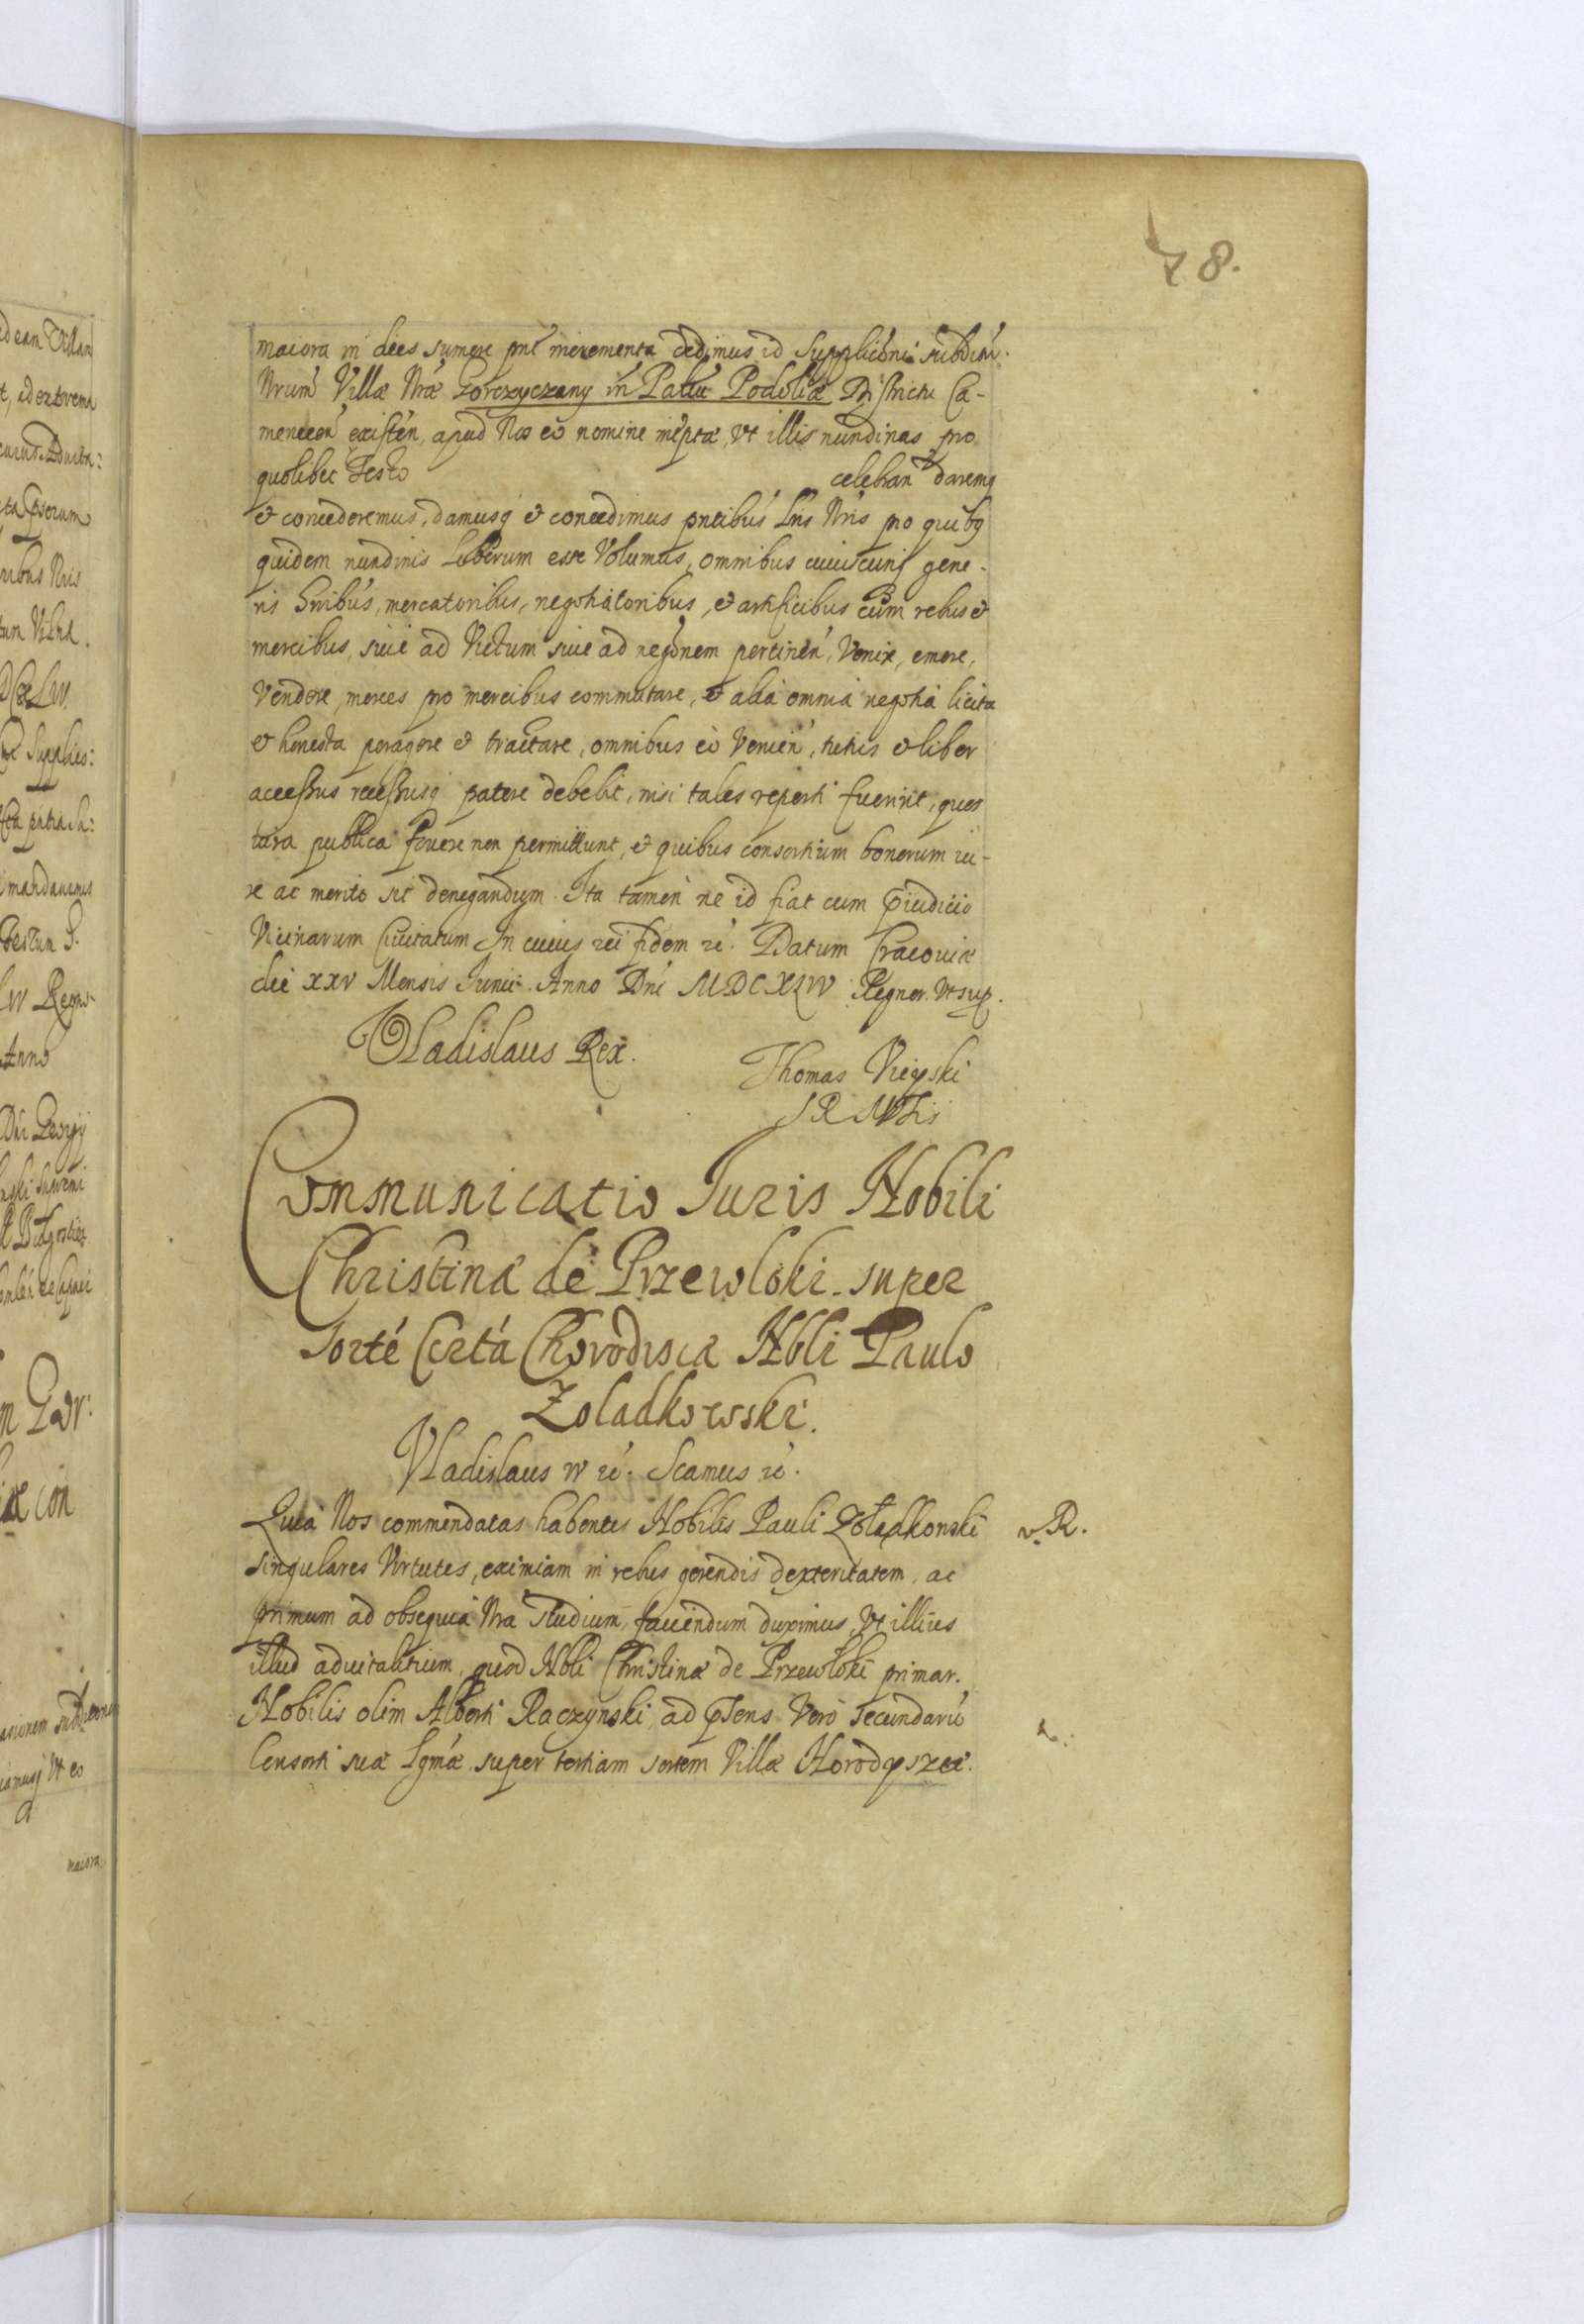 78.
maiora in dies sumere pnt incrementa dedimus id Supplicōni subditor.
Nrum Villæ Nræ Gorczyczany in Paltū Podoliæ Districtu Ca-
menecen existen, apud Nos eo nomine inteptæ, Vt illis nundinas pro
quolibet Festo celebran daremq
et concederemus, damusq et concedimus pntibus Lris Nris pro quibq
quidem nundinis Liberum esse Volumus, omnibus cuiuscunq gene-
ris hnibus, mercatoribus, negotiatoribus, et artificibus cum rebus et
mercibus, siue ad Victum siue ad negōnem pertinen, Venire, emere,
Vendere, merces pro mercibus commutare, et alia omnia negotia licita
et honesta peragere et tractare, omnibus eo Venien, tutus et liber
accessus recessusq patere debebit, nisi tales reperti fuerint, quos
iura publica fouere non permittunt, et quibus consortium bonorum iu-
re ac merito sit denegandum. Ita tamen ne id fiat cum piudicio
Vicinarum Ciuitatum In cuius rei fidem rc. Datum Cracouiæ
die XXV Mensis Iunii Anno Dni MDCXLIV Regnor. Vt sup.
Vladislaus Rex.
Thomas Vieyski
S R MTis
Communicatio Iuris Nobili
Christinæ de Przewloki super
sorte Certa Chorodisca Nbli Paulo
Zoladkowski.
Vladislaus IV rc. Scamus rc.
Quia Nos commendatas habentes Nobilis Pauli Zoładkonski
v. R.
singulares Virtutes, eximiam in rebus gerendis dexteritatem, ac
primum ad obsequia Nra studium, fauendum duximus, Vt illius
illud aduitalitium, quod Nbli Christinæ de Przewłoki primar.
Nobilis olim Alberti Raczynski, ad psens Vero secundariū
Consorti suæ Lgmæ super tertiam sortem Villæ Horodyszcze.